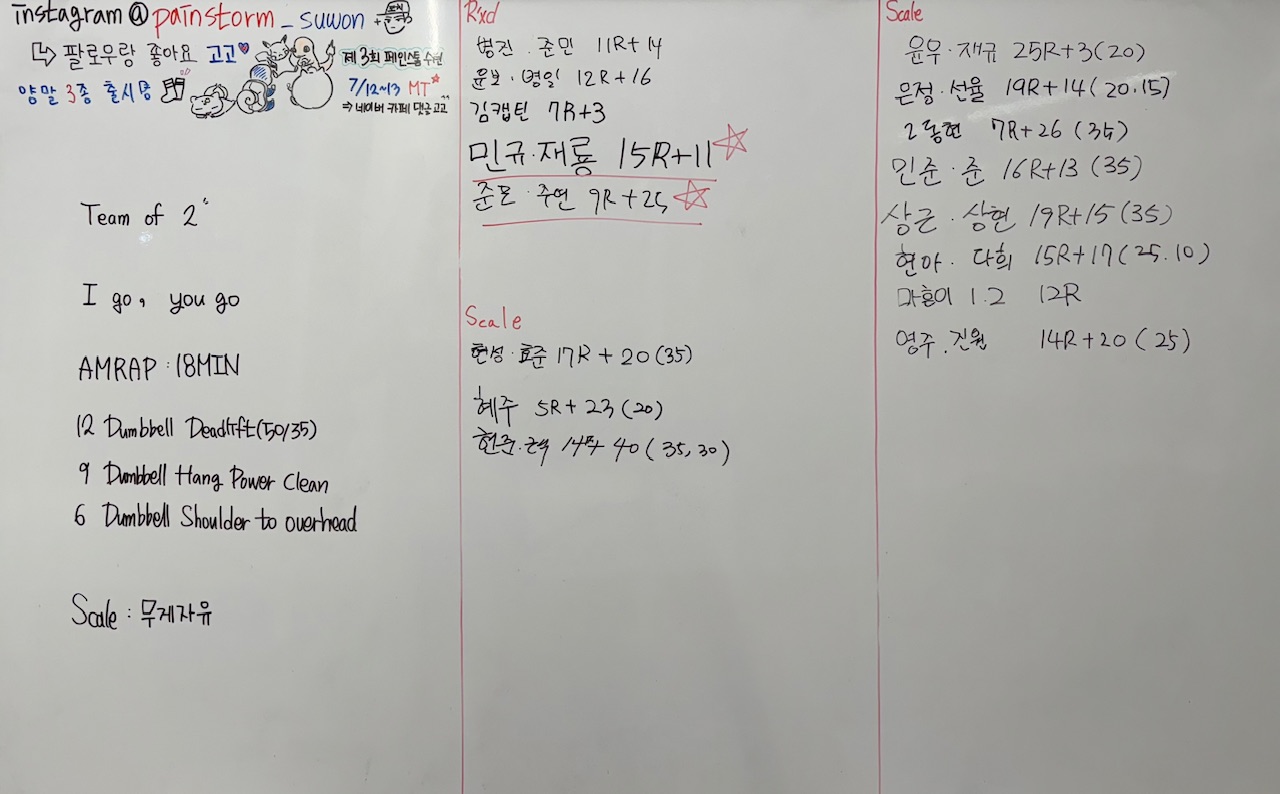 instagram @ painstorm _ suwon +
팔로우랑 좋아요 고고
양말 3종 출시중
제3회 페인스톰 수련
7/12~13 MT
⇒ 네이버 카페 댓글 고고^^
Team of 2"
I go, you go
AMRAP : 18MIN
12 Dumbbell Deadlift(50/35)
9 Dumbbell Hang Power Clean
6 Dumbbell Shoulder to overhead
Scale : 무게자유
Rxd
병진 . 준민 11R+14
윤보 · 명일 12R+16
김캡틴 7R+3
민규·재룡 15R+11
준모 · 주연 9R+25
Scale
현성 · 효준 17R + 20 (35)
혜주 5R + 23 (20)
현준. 14R+ 40 ( 35, 30 )
Scale
윤우 · 재규 25R+3(20)
은정 · 선율 19R+14( 20.15)
2동현 7R+26 (35)
민준 · 준 16R+13 (35)
상근 . 상현 19R+15 (35)
현아 . 다희 15R+17(25.10)
마흔이 1.2 12R
영주 . 진원 14R+20 ( 25)